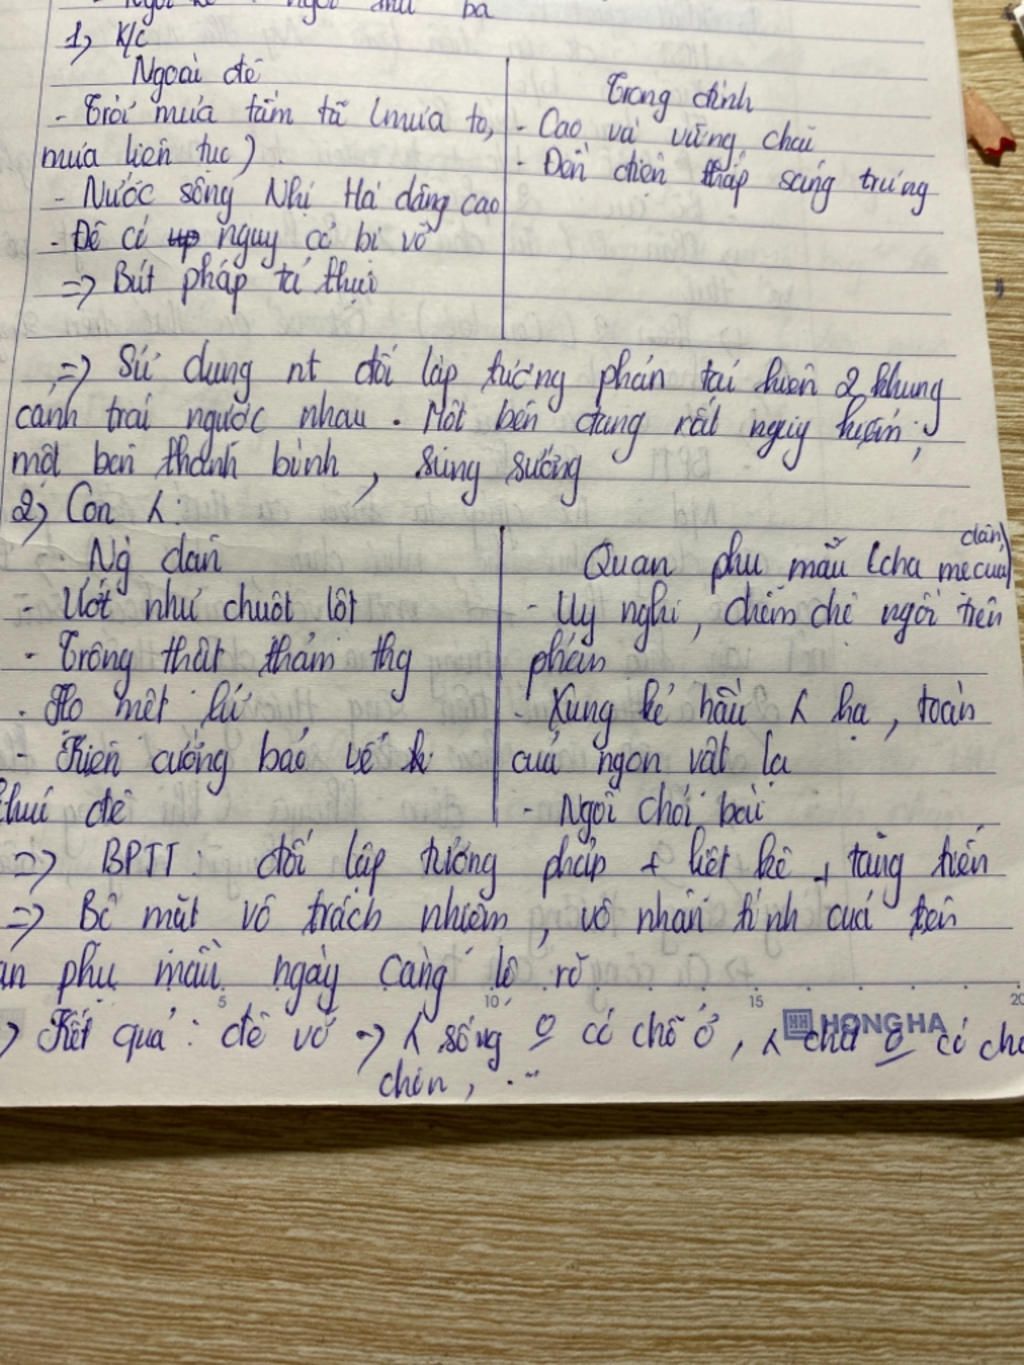 Ngôi kể: ngôi thứ ba
1, K/c
Ngoài đê
- Trời mưa tầm tã (mưa to,
mưa liên tục)
- Nước sông Nhị Hà dâng cao
- Đê có nguy cơ bị vỡ
=> Bút pháp tả thực
Trong đình
- Cao và vững chãi
- Đèn điện thắp sáng trưng
=> Sử dụng nt đối lập tương phản tái hiện 2 khung
cảnh trái ngược nhau. Một bên đang rất nguy hiểm;
một bên thanh bình, sung sướng
2, Con λ:
Ng dân
- Ướt như chuột lột
- Trông thật thảm thg
- Ho mệt lử
- Kiên cường bảo vệ
khúc đê
Quan phụ mẫu (cha mẹ của dân)
- Uy nghi, chễm chệ ngồi trên
phản
- Xung kẻ hầu λ hạ, toàn
của ngon vật lạ
- Ngồi chơi bài
=> BPTT: đối lập tương pháp + liệt kê + tăng tiến
=> Bộ mặt vô trách nhiệm, vô nhân tính của tên
an phụ mẫu ngày càng lộ rõ
=> Kết quả: đê vỡ => λ sống o có chỗ ở, λ chết o có chỗ
chôn, ...
5 10 15 20
HH HONG HA